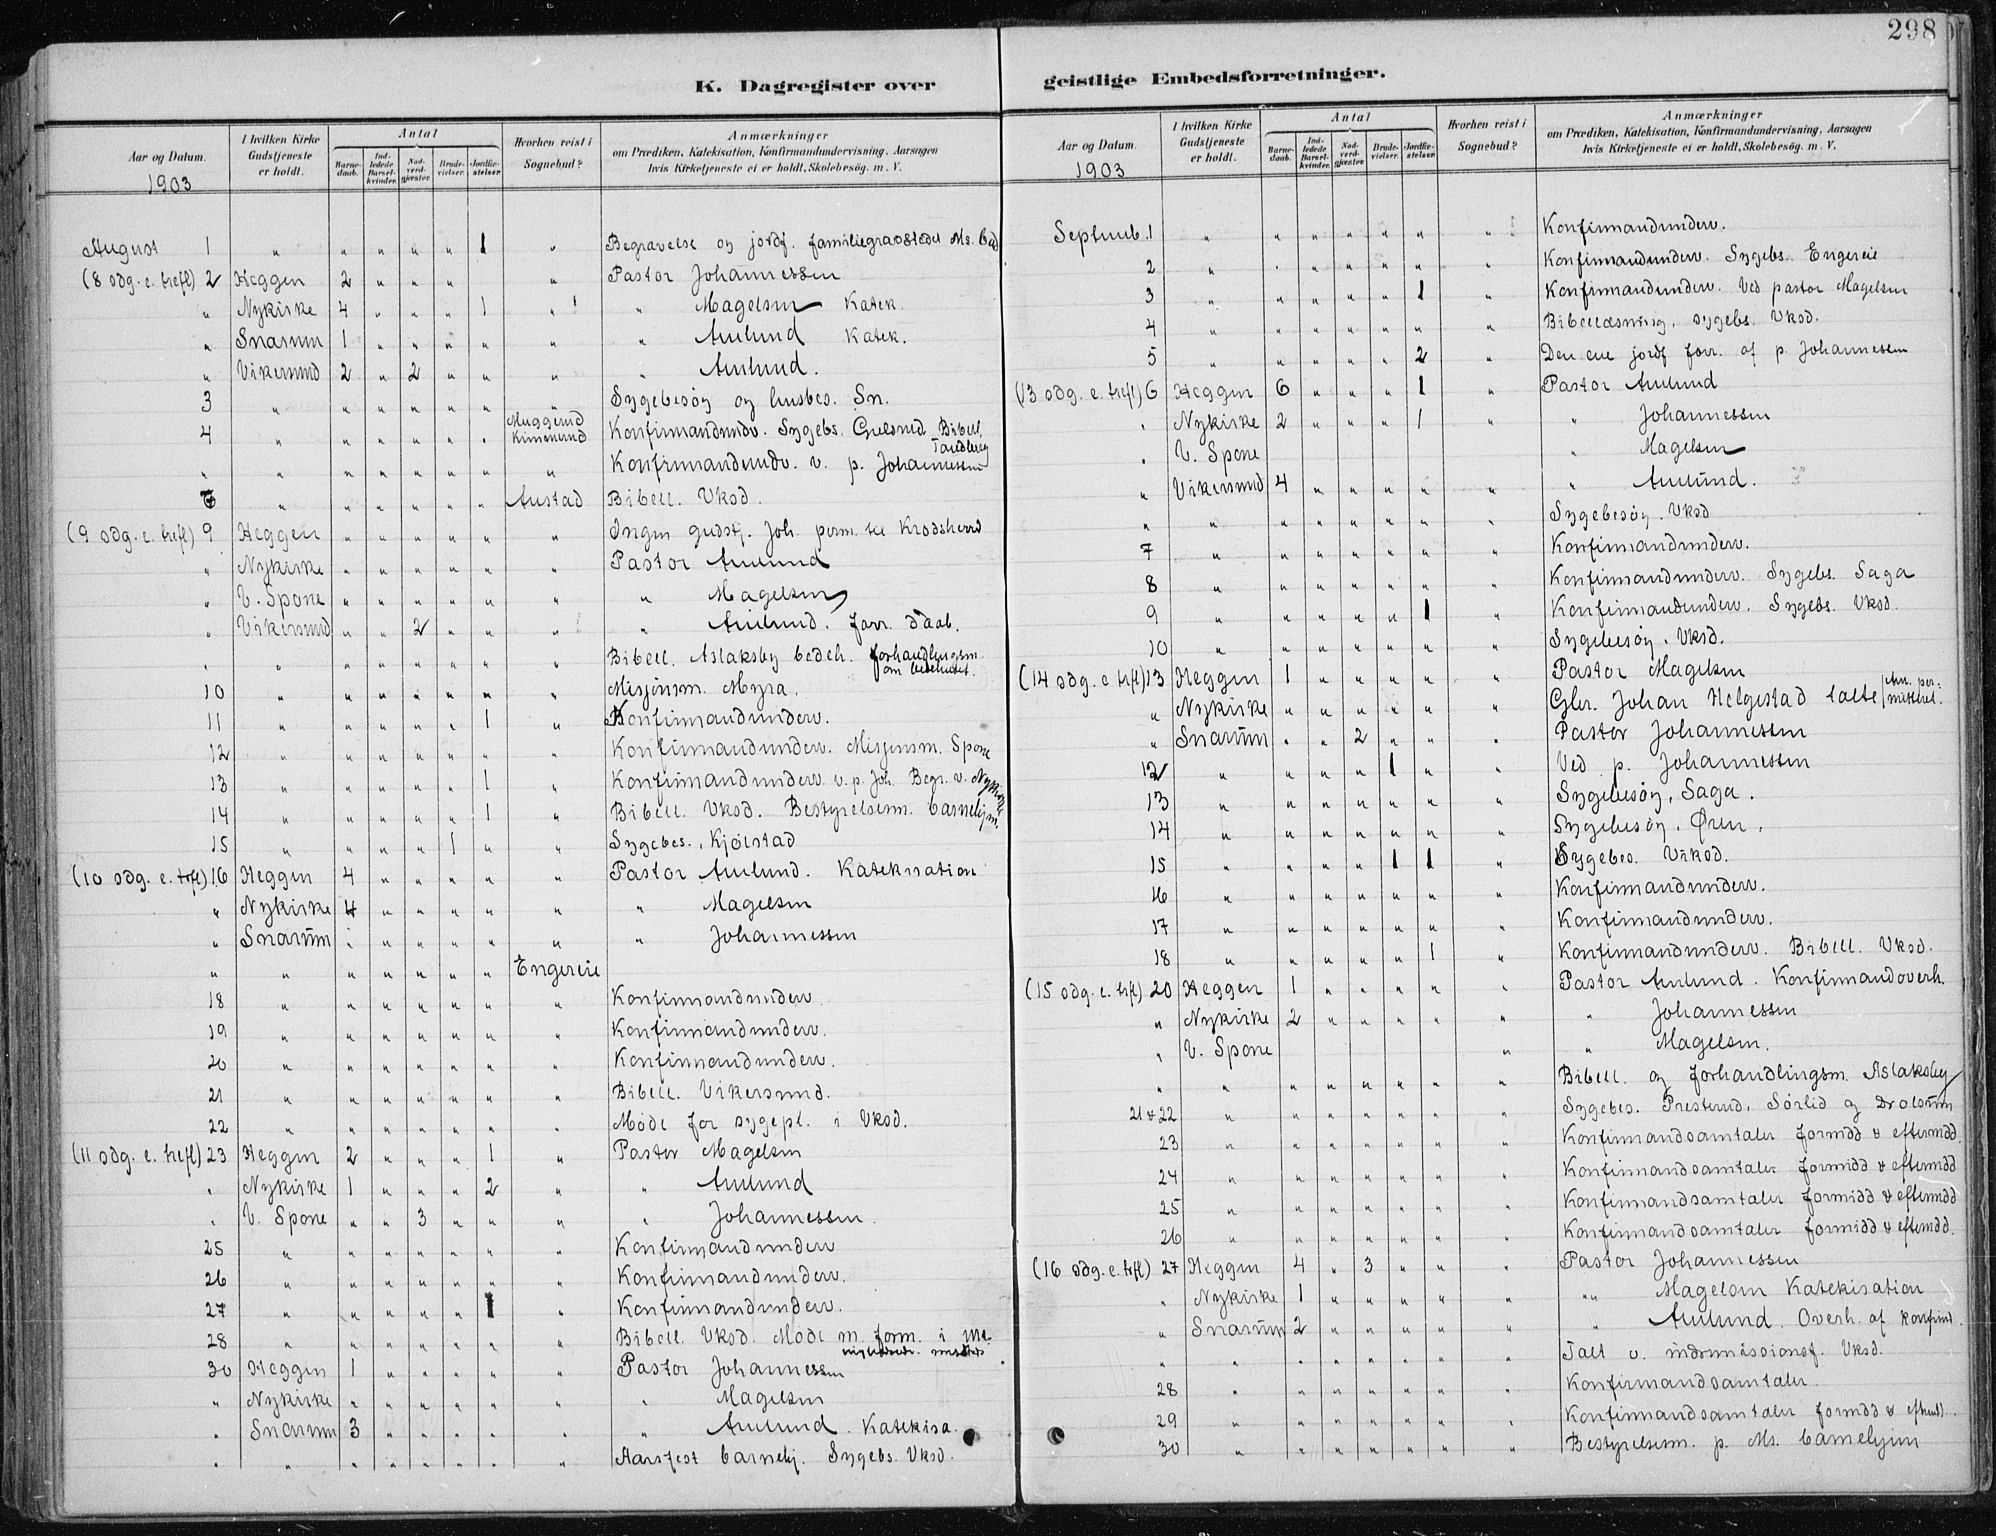 298
K. Dagregister over
geistlige Embedsforretninger.
Aar og Datum.
1903
I hvilken Kirke Gudstjeneste er holdt.
Antal
Barnedaab.
Indledede Barselkvinder.
Nadverdgjæster.
Brudevielser.
Jordfæstelser.
Hvorhen reist i Sognebud?
Anmærkninger
om Prædiken, Katekisation, Konfirmandundervisning, Aarsagen
hvis Kirketjeneste ei er holdt, Skolebesög. m. V.
August 1 " " " " " 1 " Begravelse og jordf. familiegravstedet Ms.
(8 sdg. e. trefl) 2 Heggen 2 " " " " Pastor Johannessen
" Nykirke 4 " " " 1 " " Magelsen Katek.
" Snarum 1 " " " " " " Amlund Katek.
" Vikersund 2 " 2 " " " " Amlund.
3 " " " " " " Sygebesøg og husbes. Sn.
4 " " " " " " Muggerud Konfirmandundv. Sygebs. Bibell.
" " " " " " " " Konfirmandundv. v. p. Johannessen
" " " " " " Austad Bibell. Vksd.
(9 sdg. e. trefl) 9 Heggen " " " " " " Ingen gudstj. Joh. perm. til Krødsherrd
" Nykirke " " " " " " Pastor Amlund
" V. Spone " " " " " " " Magelsen
" Vikersund " " 2 " " " " Amlund. forr. daab.
" " " " " " " " Bibell. Aslaksby bedeh. forhandlingsm. om bedehuset.
10 " " " " " " " Misjonsm. Myra.
11 " " " " " 1 " Konfirmandunderv.
12 " " " " " " " Konfirmandunderv. Misjonsm. Spone
13 " " " " " 1 " Konfirmandunderv. v. p. Joh. Begr. v. Nykirke
14 " " " " " 1 " Bibell. Vksd. Bestyrelsesm. barnehjm.
15 " " " " 1 " " Sygebes. Kjølstad
(10 sdg. e. trfl) 16 Heggen 4 " " " " " Pastor Amlund. Katekisation
" Nykirke 4 " " " " " " Magelsen
" Snarum 1 " " " " " " Johannessen
" " " " " " " Engereie
18 " " " " " " " Konfirmandunderv.
19 " " " " " " " Konfirmandunderv.
20 " " " " " " " Konfirmandunderv.
21 " " " " " " " Bibell. Vikersund.
22 " " " " " " " Møde for sygepl. i Vksd.
(11 sdg. e. trefl) 23 Heggen 2 " " " 1 " Pastor Magelsen
" Nykirke 1 " " " 2 " " Amlund
" V. Spone " " 3 " " " " Johannessen.
25 " " " " " " " Konfirmandunderv
26 " " " " " " " Konfirmandunderv.
27 " " " " " 1 " Konfirmandunderv.
28 " " " " " " " Bibell. Vksd. Møde m. form. i
30 Heggen 1 " " " " " Pastor Johannessen
" Nykirke " " " " " " " Magelsen
" Snarum 3 " " " " " " Amlund. Katekisa.
" " " " " " " " Aarsfest barnehj. Sygebs. Vksd.
Aar og Datum.
1903
I hvilken Kirke Gudstjeneste er holdt.
Antal
Barnedaab.
Indledede Barselkvinder.
Nadverdgjæster.
Brudevielser.
Jordfæstelser.
Hvorhen reist i Sognebud?
Anmærkninger
om Prædiken, Katekisation, Konfirmandundervisning, Aarsagen
hvis Kirketjeneste ei er holdt, Skolebesög. m. V.
Septemb. 1 " " " " " " " Konfirmandunderv.
2 " " " " " " " Konfirmandunderv. Sygebs. Engereie
3 " " " " " 1 " Konfirmandunderv. Ved pastor Magelsen
4 " " " " " " " Bibellæsning, sygebs. Vksd.
5 " " " " " 2 " Den ene jordf forr. af p. Johannessen
(13 sdg. e. trefl) 6 Heggen 6 " " " 1 " Pastor Amlund
" Nykirke 2 " " " 1 " " Johannessen
" V. Spone " Magelsen
" Vikersund 4 " " " " " " Amlund.
" " " " " " " " Sygebesøg. Vksd
7 " " " " " " " Konfirmandunderv.
8 " " " " " " " Konfirmandunderv. Sygebs. Saga
9 " " " " " 1 " Konfirmandunderv. Sygebs. Vksd.
10 " " " " " " " Sygebesøg. Vksd.
(14 sdg. e trfl) 13 Heggen 1 " " " " " Pastor Magelsen
" Nykirke " " " " " " Gbr. Johan Helgestad talte / Am. permitteret.
" Snarum " " 2 " " " Pastor Johannessen
12 " " " " 1 " " Ved p. Johannessen
13 " " " " " " " Sygebesøg, Saga.
14 " " " " " " " Sygebesøg. Øren.
15 " " " " 1 1 " Sygebes. Viksd.
16 " " " " " " " Konfirmandunderv.
17 " " " " " " " Konfirmandunderv.
18 " " " " " 1 " Konfirmandunderv. Bibell. Vksd.
(15 sdg. e. trfl) 20 Heggen 1 " " " " " Pastor Amlund. Konfirmandoverh.
" Nykirke 2 " " " " " " Johannessen
" V. Spone " " Magelsen.
" " " " " " " " Bibell. og forhandlingsm. Aslaksby
21 & 22 " " " " " " " Sygebes. Presterud, Sørlid og Drolsum
23 " " " " " " " Konfirmandsamtaler formdd & eftermdd.
24 " " " " " " " Konfirmandsamtaler formdd & eftermdd
25 " " " " " " " Konfirmandsamtaler formidd & eftermdd
26 " " " " " " " Konfirmandsamtaler formidd & eftermdd.
(16 sdg. e. trfl) 27 Heggen 4 " 3 " " " Pastor Johannessen
" Nykirke 1 " " " " " " Magelsen Katekisation
" Snarum 2 " " " " " " Amlund. Overh. af konfirm.
" " " " " " " " Talt v. indremissionsf. Vksd.
28 " " " " " " " Konfirmandsamtaler.
29 " " " " " " " Konfirmandsamtaler formdd &
30 " " " " " " " Bestyrelsesm. p. Ms. barnehjem